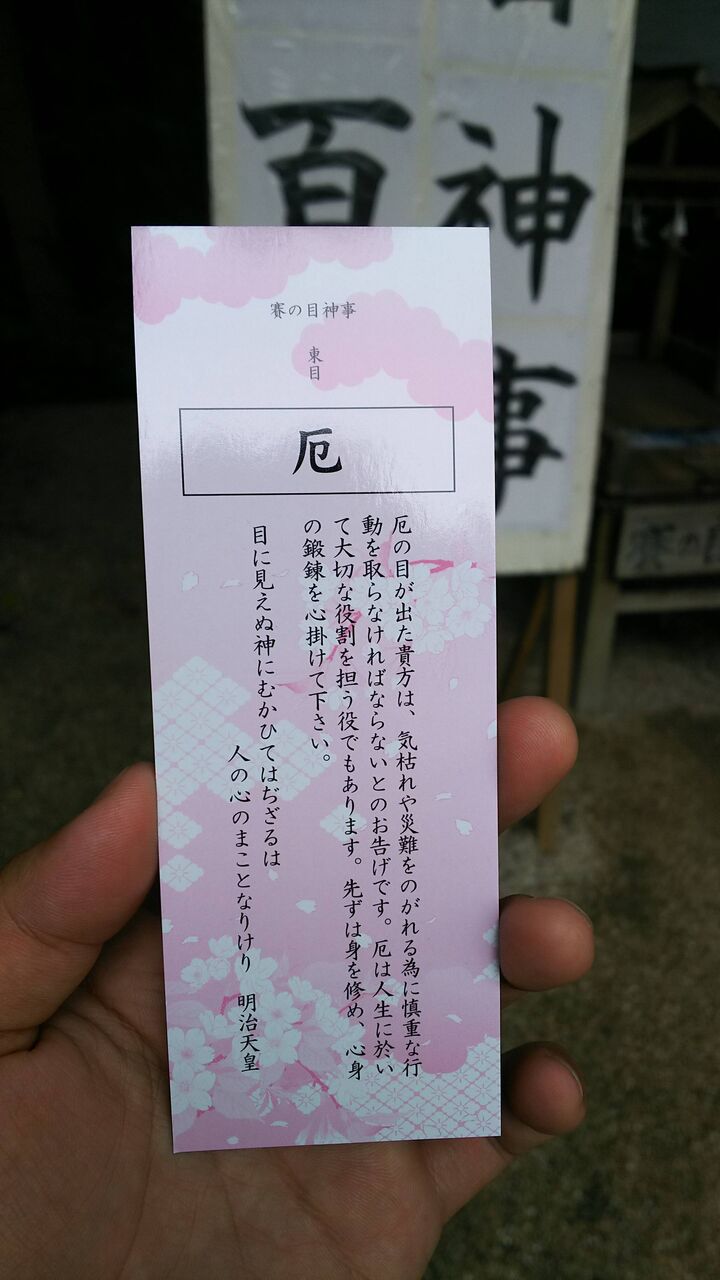 賽の目神事
東目
厄
厄の目が出た貴方は、気枯れや災難をのがれる為に慎重な行
動を取らなければならないとのお告げです。厄は人生に於い
て大切な役割を担う役でもあります。先ずは身を修め、心身
の鍛錬を心掛けて下さい。
目に見えぬ神にむかひてはぢざるは
人の心のまことなりけり　明治天皇
神事
百
賽の目